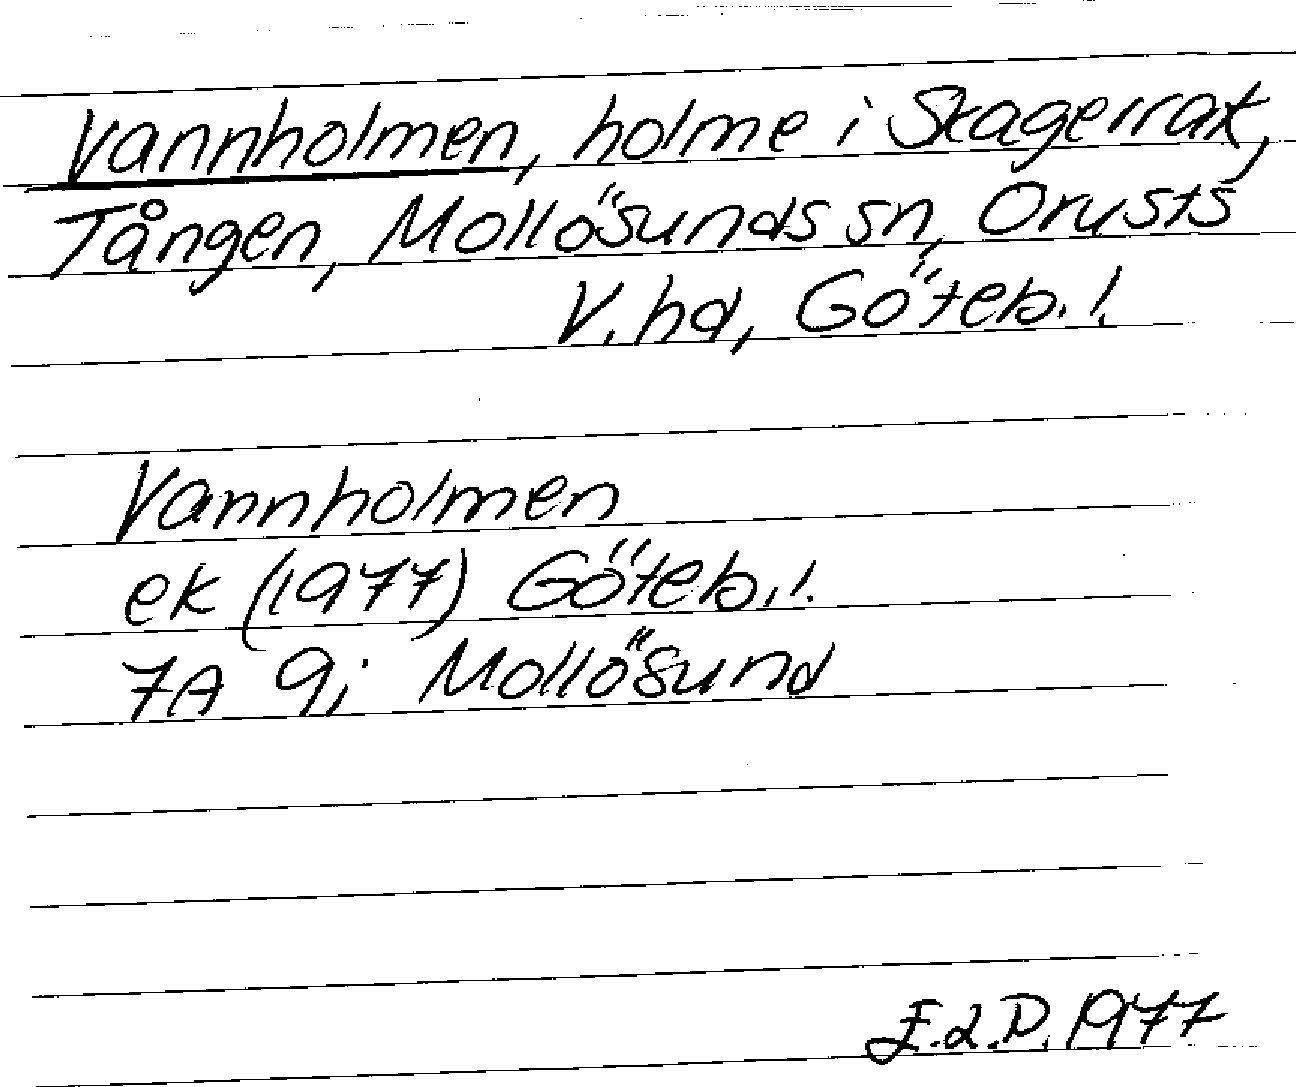 Vannholmen, holme i Skagerrak,
Tången, Mollösunds sn, Orusts
V. hd, Göteb. l.
Vannholmen
ek (1977) Göteb. l.
7A 9i Mollösund
1977